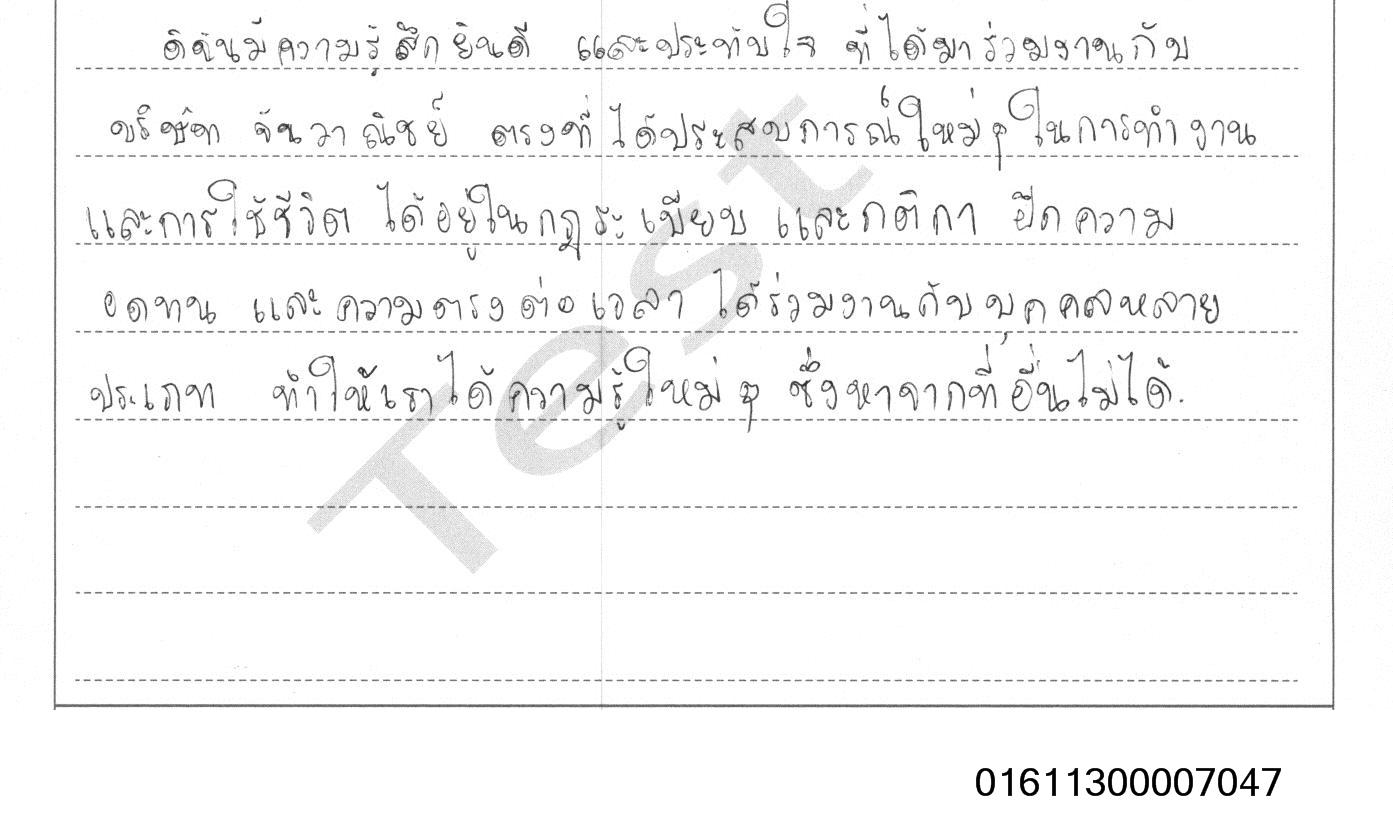 ดิฉันมีความรู้สึกยินดี และประทับใจ ที่ได้มาร่วมงานกับ
บริษัท จันวาณิชย์ ตรงที่ได้ประสบการณ์ใหม่ๆ ในการทำงาน
และการใช้ชีวิต ได้อยู่ในกฎระเบียบ และกติกา ฝึกความ
อดทน และความตรงต่อเวลา ได้ร่วมงานกับบุคคลหลาย
ประเภท ทำให้เราได้ความรู้ใหม่ ๆ ซึ่งหาจากที่อื่นไม่ได้.
Test
01611300007047